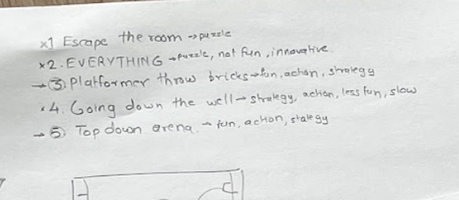 x1 Escape the room → puzzle
x2. EVERYTHING → puzzle, not fun, innovative
→ ③. Platformer throw bricks → fun, action, strategy
• 4. Going down the well → strategy, action, less fun, slow
→ ⑤ Top down arena → fun, action, stategy